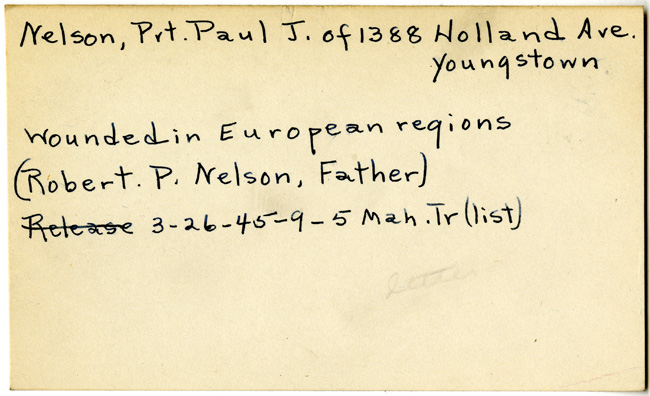 Nelson, Pvt. Paul J. of 1388 Holland Ave.
Youngstown
Wounded in European regions
(Robert. P. Nelson, Father)
Release 3-26-45-9-5 Mah. Tr (list)